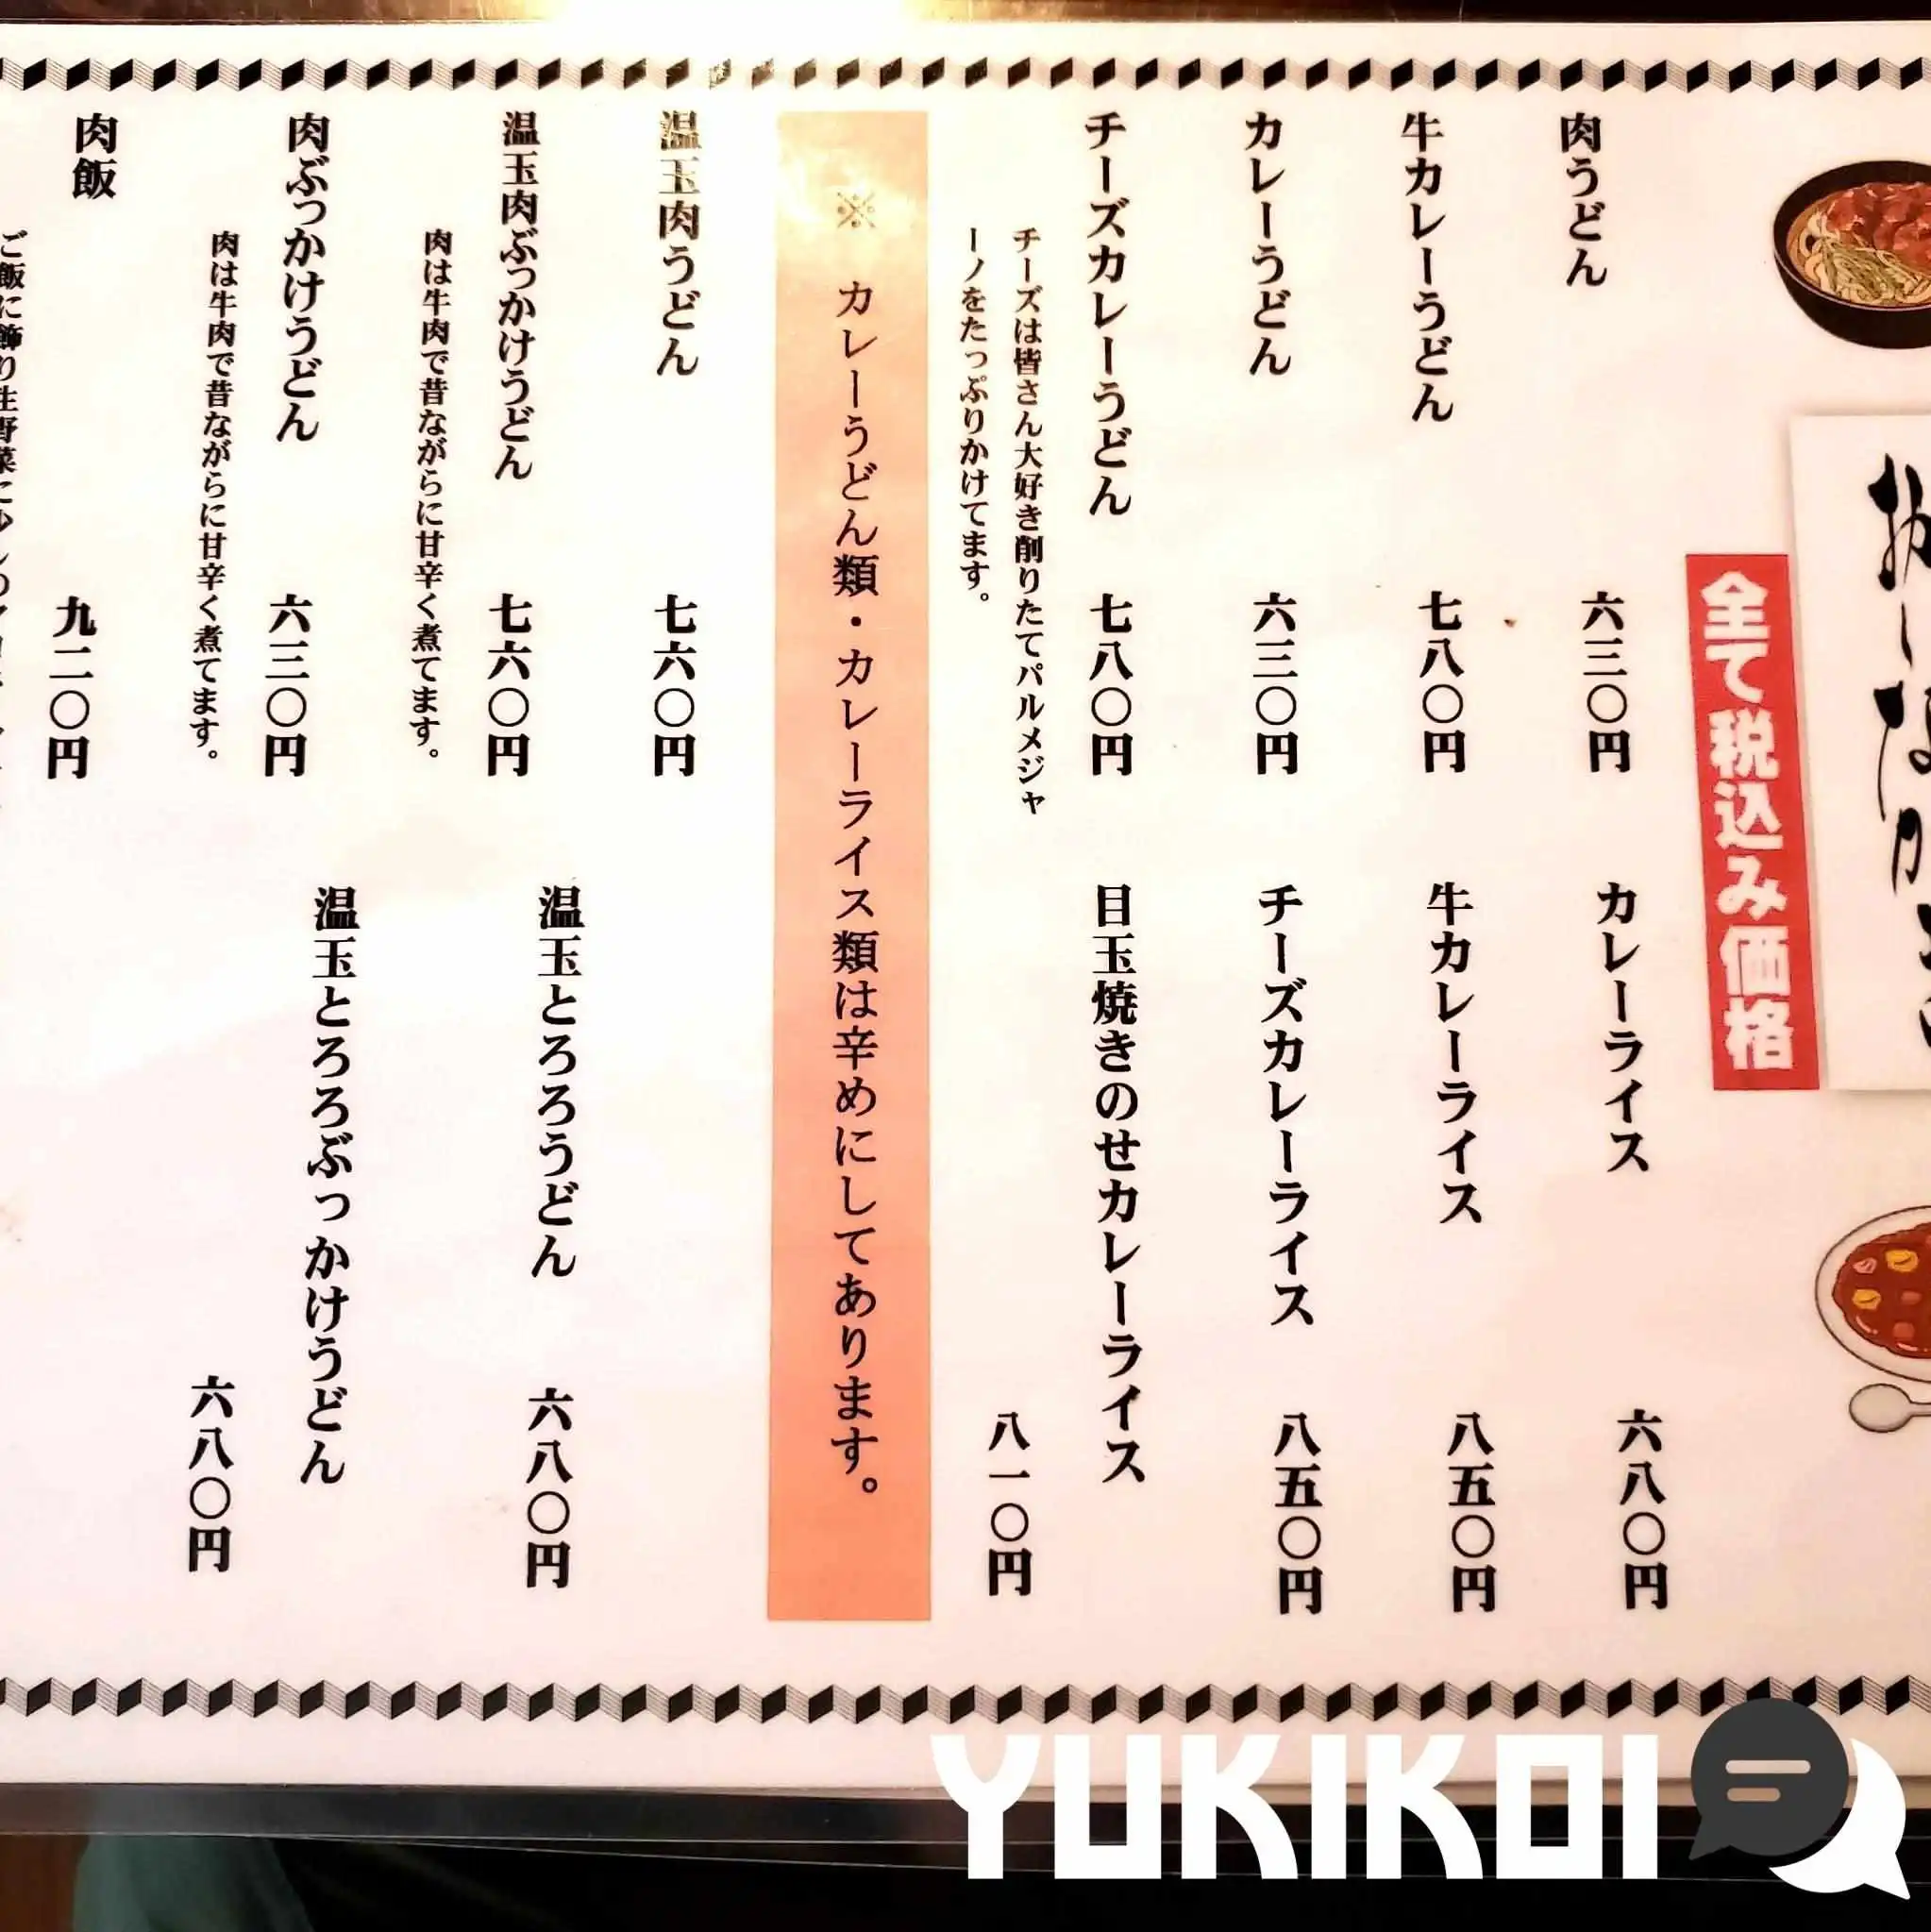 全て税込み価格
肉うどん
六三〇円
牛カレーうどん
七八〇円
カレーうどん
六三〇円
チーズカレーうどん
七八〇円
チーズは皆さん大好き削りたてパルメジャ
ーノをたっぷりかけてます。
カレーライス
六八〇円
牛カレーライス
八五〇円
チーズカレーライス
八五〇円
目玉焼きのせカレーライス
八一〇円
※ カレーうどん類・カレーライス類は辛めにしてあります。
温玉肉うどん
七六〇円
温玉肉ぶっかけうどん
七六〇円
肉は牛肉で昔ながらに甘辛く煮てます。
肉ぶっかけうどん
六三〇円
肉は牛肉で昔ながらに甘辛く煮てます。
肉飯
九二〇円
ご飯に飾り生野菜に
温玉とろろうどん
六八〇円
温玉とろろぶっかけうどん
六八〇円
YUKIKOI